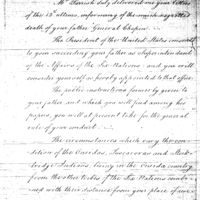 Mr Parrish duly delivered me your letter
of the 13th ultimo, informing of the much regretted
death of your father General Chapin.
The President of the United States consents
to your succeeding your father as Superintendent
of the Affairs of the Six Nations; and you will
consider yourself as hereby appointed to that office.
The public instructions formerly given to
your father, and which you will find among his
papers, you will at present take for the general
rule of your conduct.
The circumstances which vary the con-
dition of the Oneidas, Tuscaroras and Stock-
bridge Indians, living in the Oneida country
from the other tribes of the Six Nations
with their distance from your place of